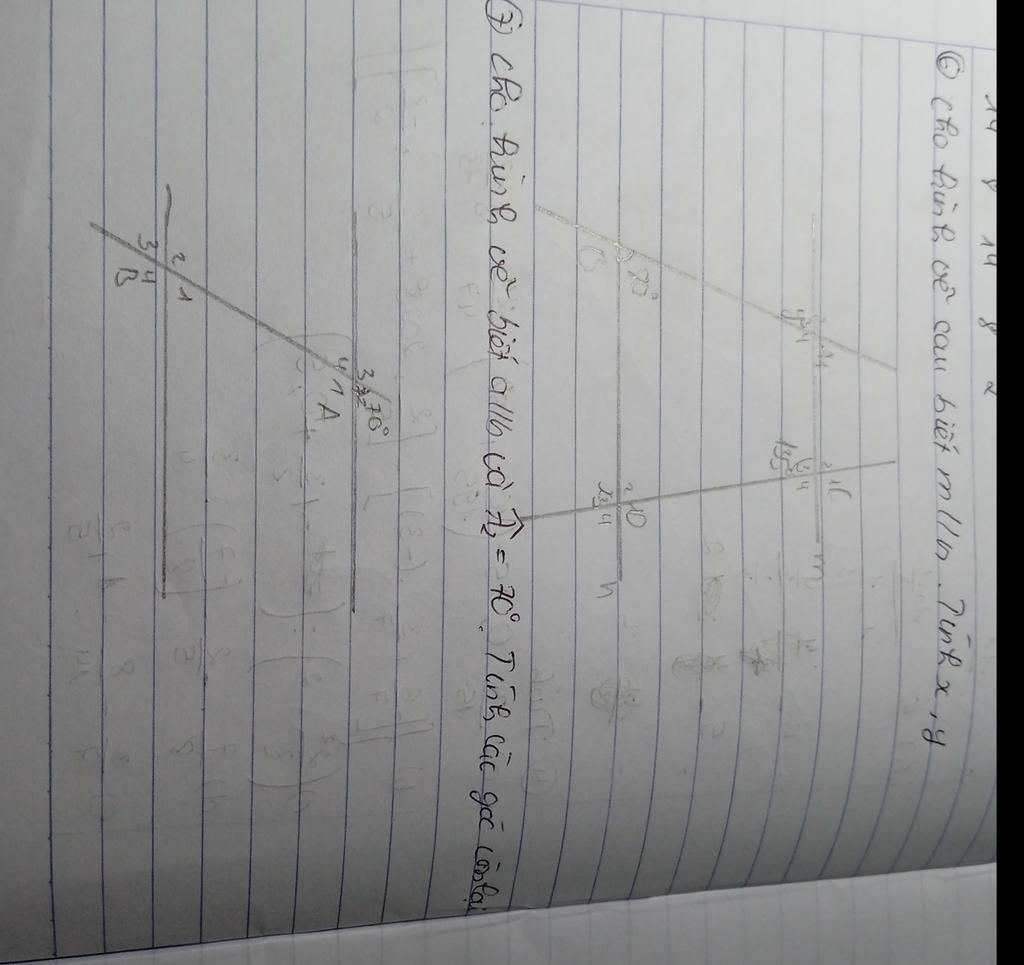 14 8 14 8 2
⑥ cho hình vẽ sau biết m//n. Tính x, y
m
n
B
70°
⑦ cho hình vẽ biết a//b và Â₂ = 70°. Tính các góc còn lại
3
70°
4 1 A
2
1
3
4
B